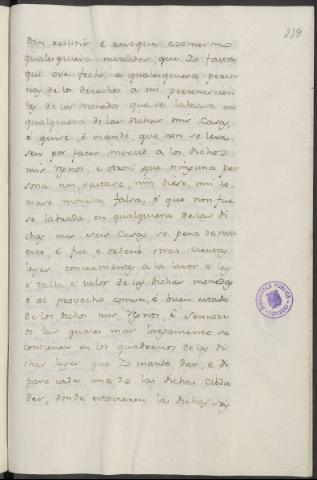 339
sin restituir, é revoque eso mesmo
qualesquiera mercedes que Yo fasta
qui ove fecho a qualesquiera perso
nas de los derechos a mi pertenescien
tes de las monedas que se labrare en
qualquiera de las dichas mis Casas,
é quise, é mandé, que non se leva
sen por facer merced a los dichos
mis Rgnos, e otrosi que ninguna per
sona non sacase, nin diese, nin to
mase moneda falsa, é que non fue
se labrada en qualquiera de las di
chas mis seis Casas so pena de mu
erte, é fice é ordené otras ciertas
leyes, concernientes a la labor é ley
é talla, é valor de las dichas monedas
é al provecho comun, é buen estado
de los dichos mis Rgnos, é Señorí
os las quales mas largamente se
contienen en los quadernos de las di
chas leyes que Yo mandé dar, é di
para cada una de las dichas Cibda
des, donde estovieren las dichas seis
BIBLIOTECA PUBLICA
TOLEDO